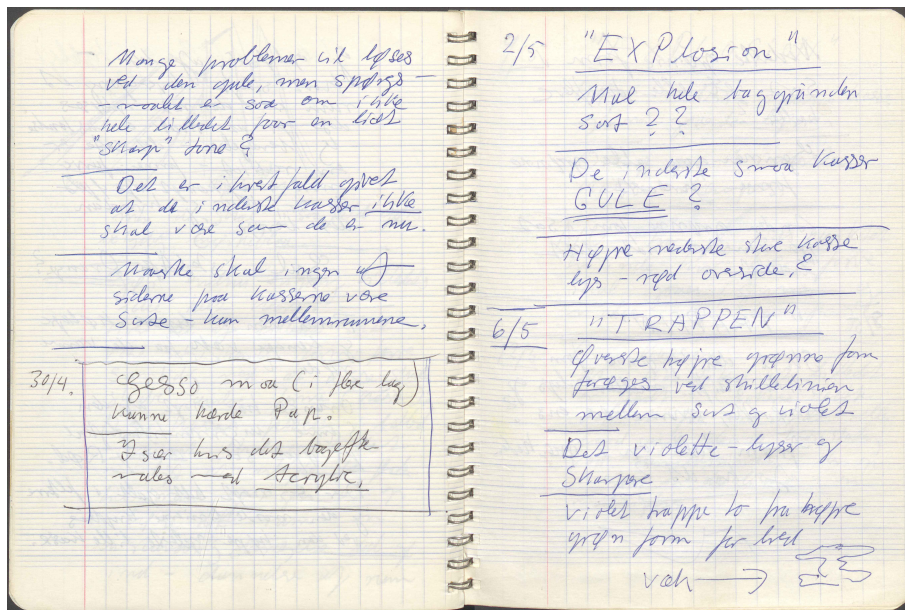 Mange problemer vil løses
ved den gule, men spørgs-
-maalet er saa om ikke
hele billedet faar en lidt
"skarp" tone?
Det er i hvert fald givet
at de inderste kasser ikke
skal være som de er nu.
Maaske skal ingen af
siderne paa kasserne være
Sorte - kun mellemrummene.
30/4. Gesso maa (i flere lag)
kunne hærde Pap.
Især hvis det bagefter
males med Acrylic.
2/5 "EXPlosion"
Mal hele baggrunden
sort??
De inderste smaa kasser
GULE?
Højre nederste store kasse
lys - rød overside.?
6/5 "TRAPPEN"
Øverste højre grønne form
forøges ved skillelinien
mellem sort og violet
Det violette - lyser og
Skarpere
violet trappe to fra højre
grøn form for bred
væk →